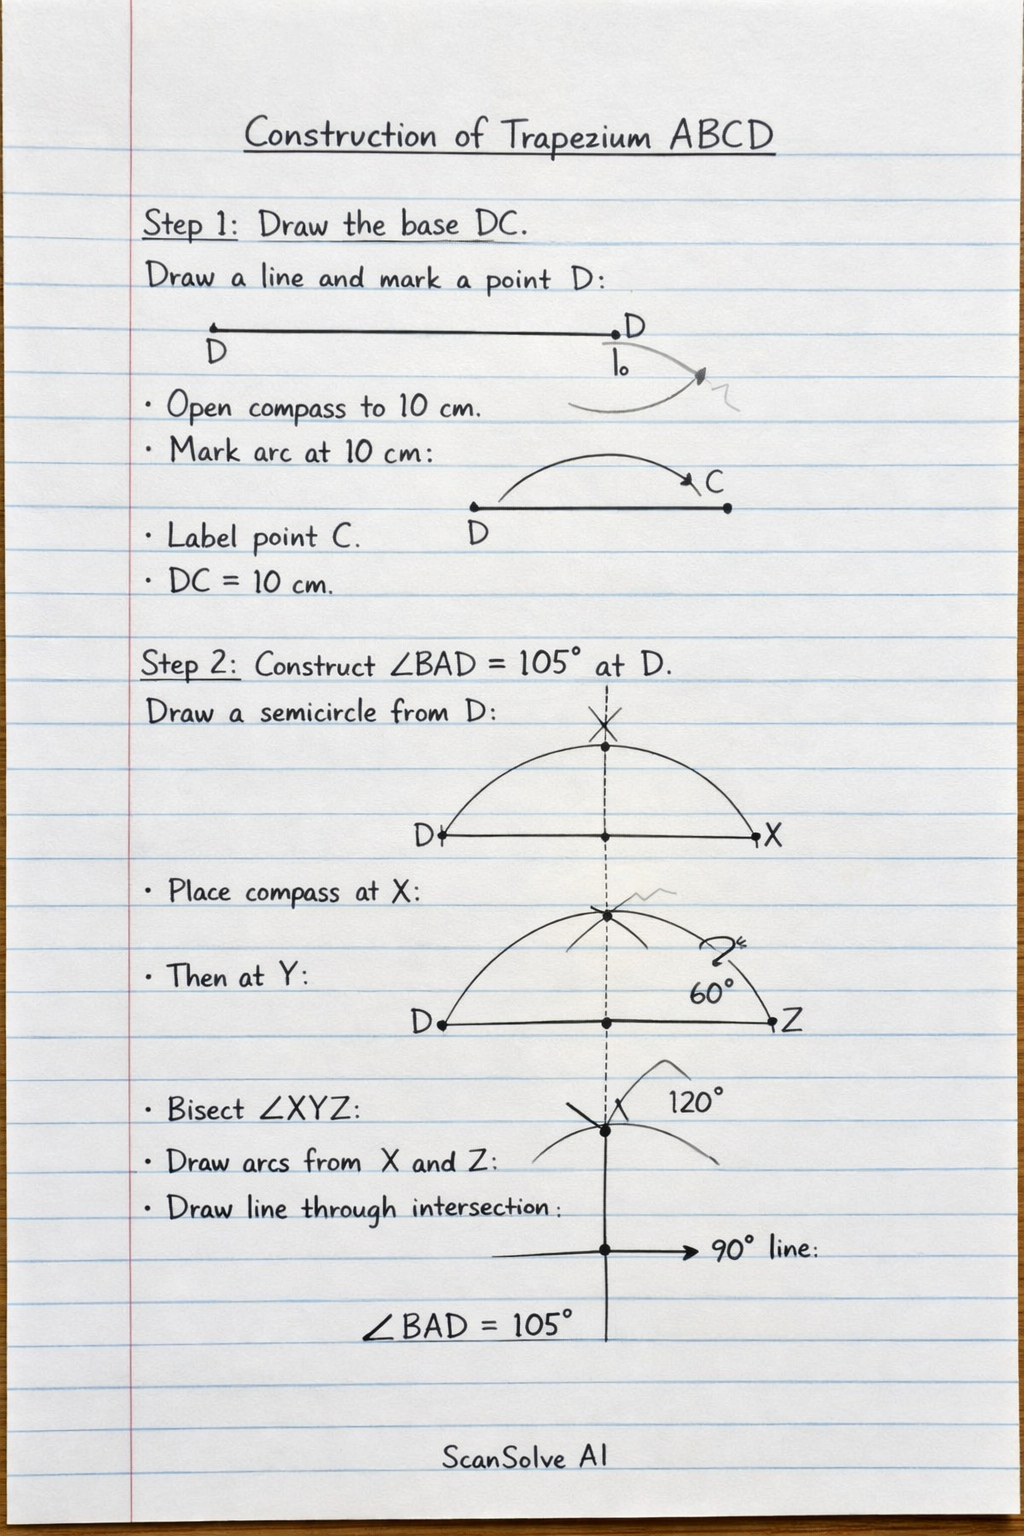 Construction of Trapezium ABCD
Step 1: Draw the base DC.
Draw a line and mark a point D:
D
D
10
• Open compass to 10 cm.
• Mark arc at 10 cm:
C
D
• Label point C.
• DC = 10 cm.
Step 2: Construct ∠BAD = 105° at D.
Draw a semicircle from D:
D X
• Place compass at X:
• Then at Y:
60°
D Z
120°
• Bisect ∠XYZ:
• Draw arcs from X and Z:
• Draw line through intersection:
90° line:
∠BAD = 105°
ScanSolve AI